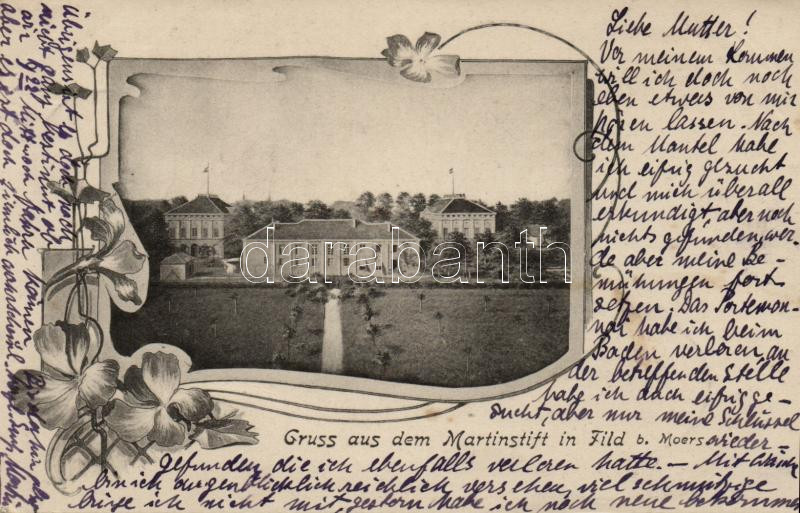 Liebe Mutter!
Vor meinem Kommen
will ich doch noch
eben etwas von mir
hören lassen. Nach
dem Mantel habe
ich eifrig gesucht
und mich überall
erkundigt, aber noch
nichts gefunden, wer-
de aber meine Be-
mühungen fort
setzen. Das Portemon-
nai habe ich beim
Baden verloren, an
der betreffenden Stelle
habe ich auch eifrig ge-
sucht, aber nur meine Schlüssel
wieder-
gefunden, die ich ebenfalls verloren hatte. — Mit
bin ich augenblicklich reichlich versehen, viel schmutzige
bringe ich nicht mit, gestern habe ich noch neue bekommen
Übrigens ist
nicht ganz
aber es ist dann ziemlich
Gruss aus dem Martinstift in Fild b. Moers
darabanth.com